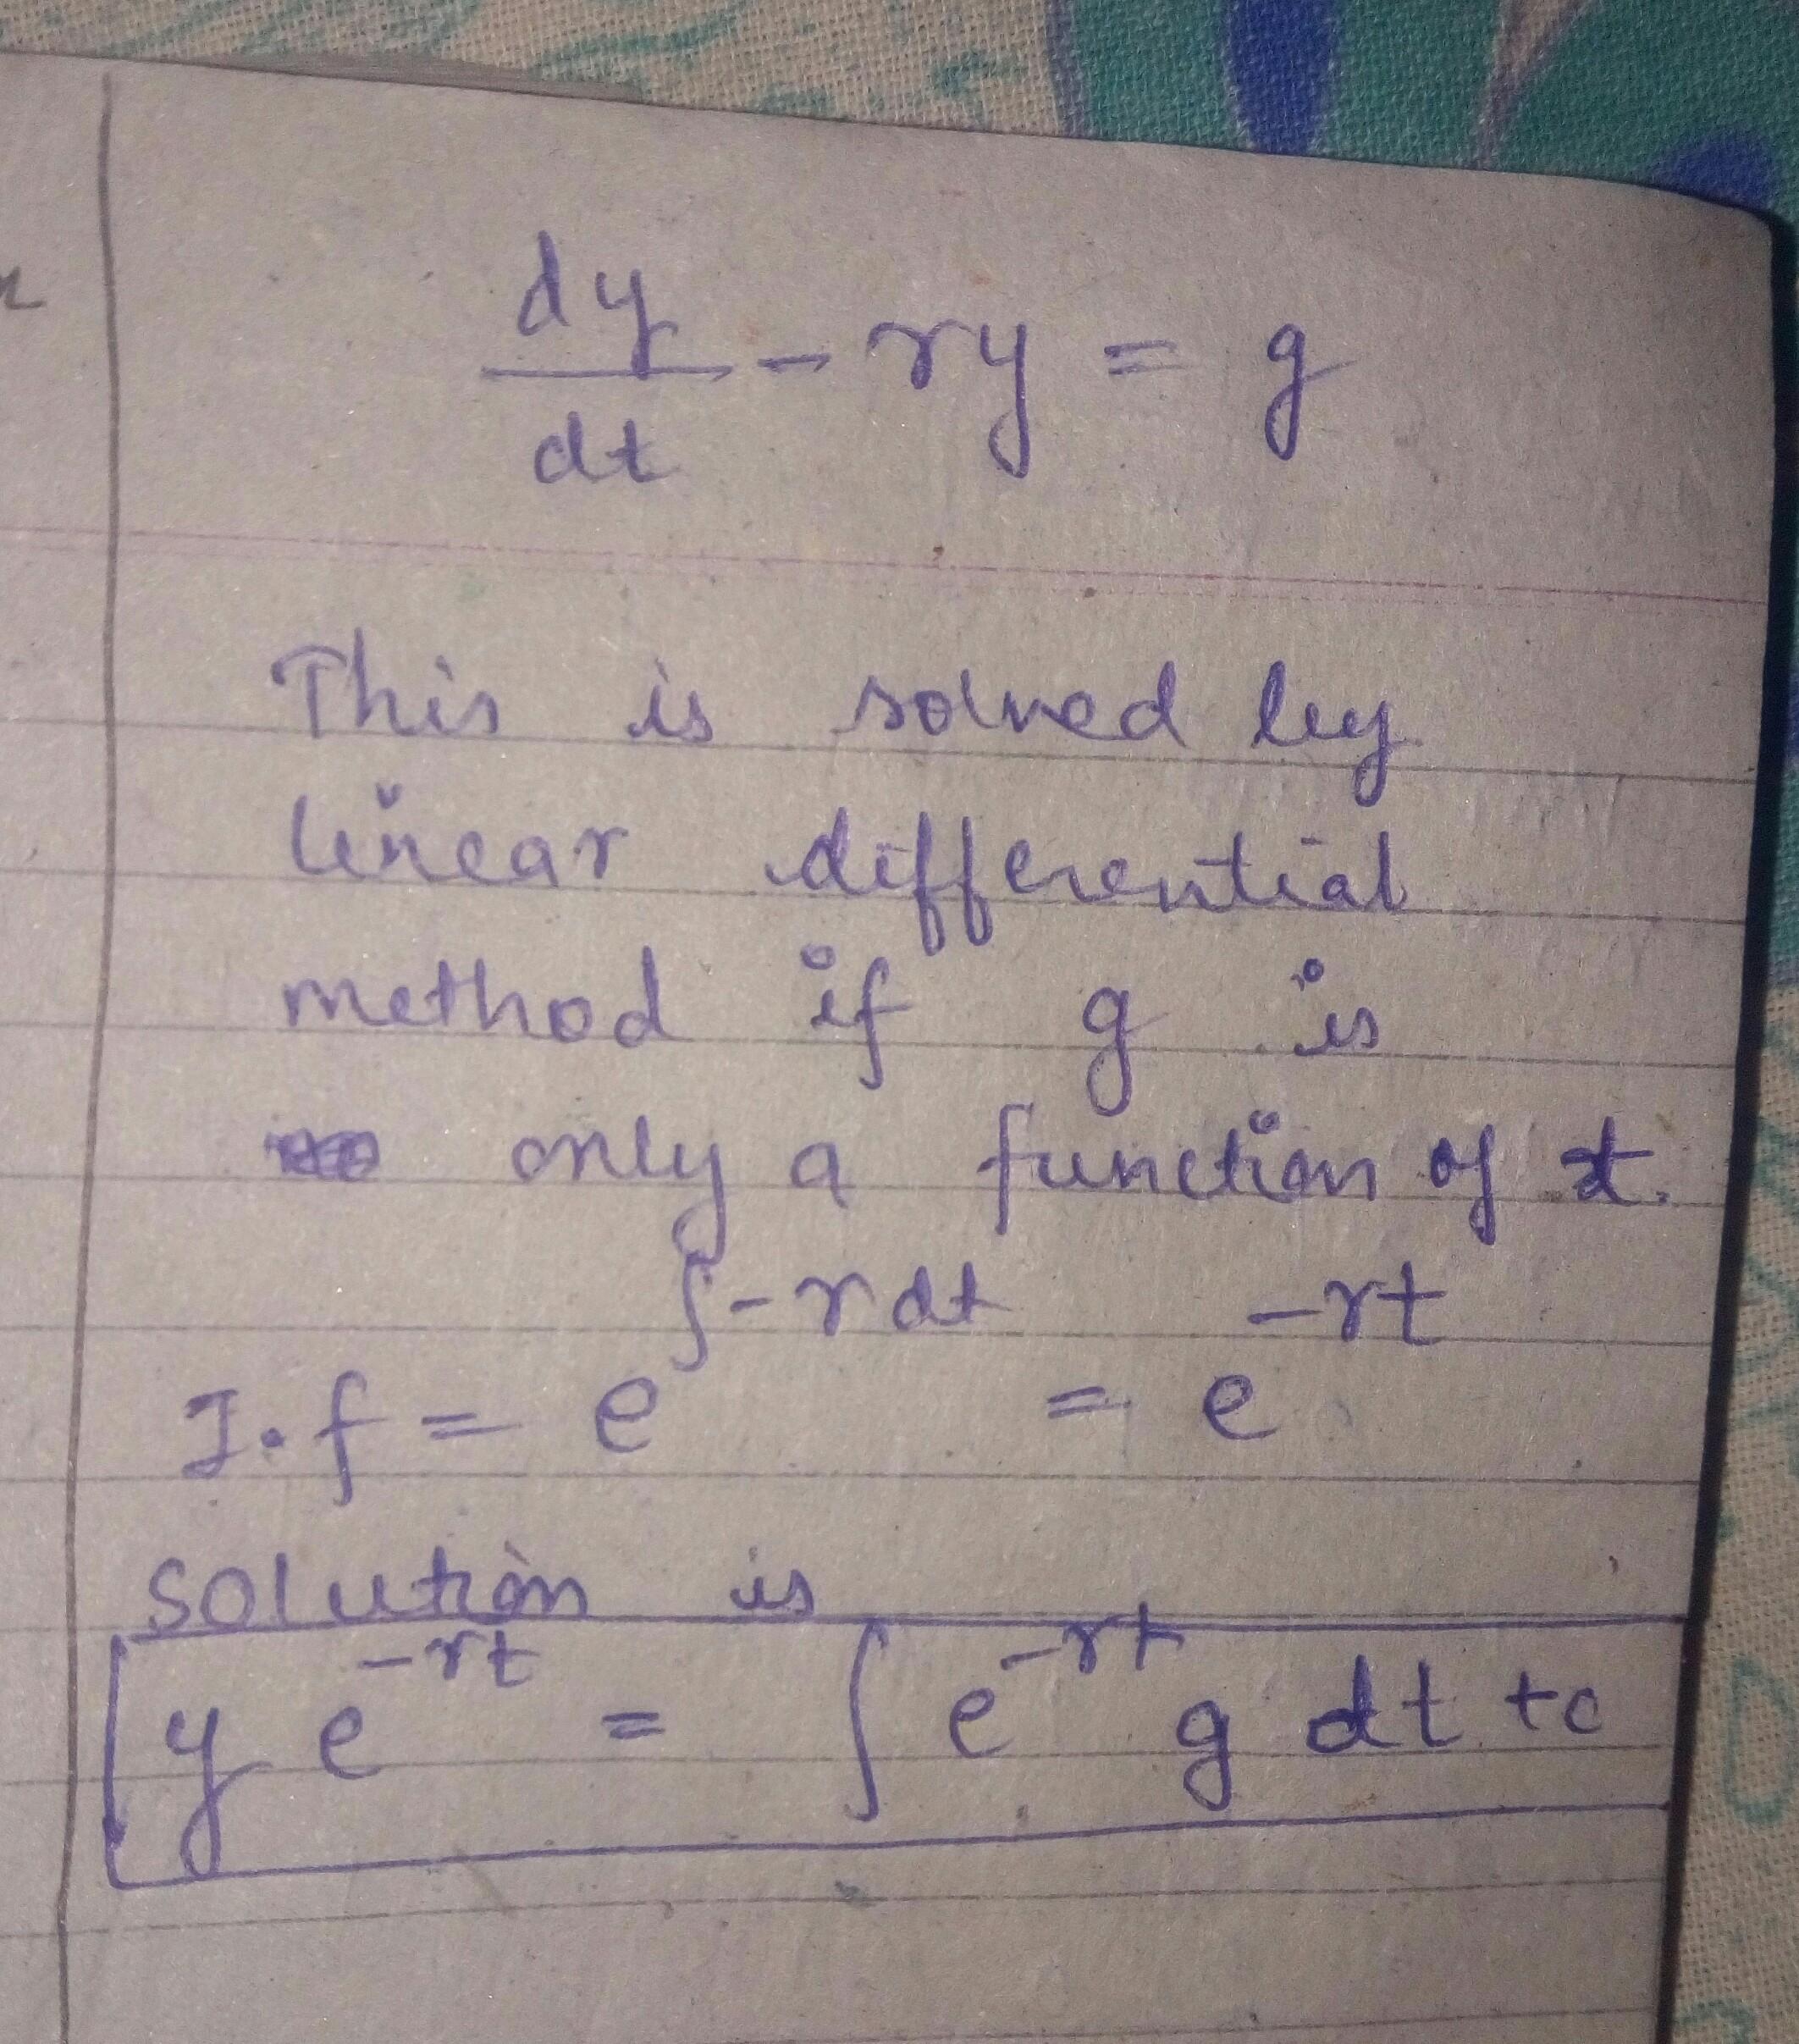 dy/dt - ry = g
This is solved by
linear differential
method if g is
only a function of t.
I.f = e^∫-rdt = e^-rt
solution is
y e^-rt = ∫ e^-rt g dt +c